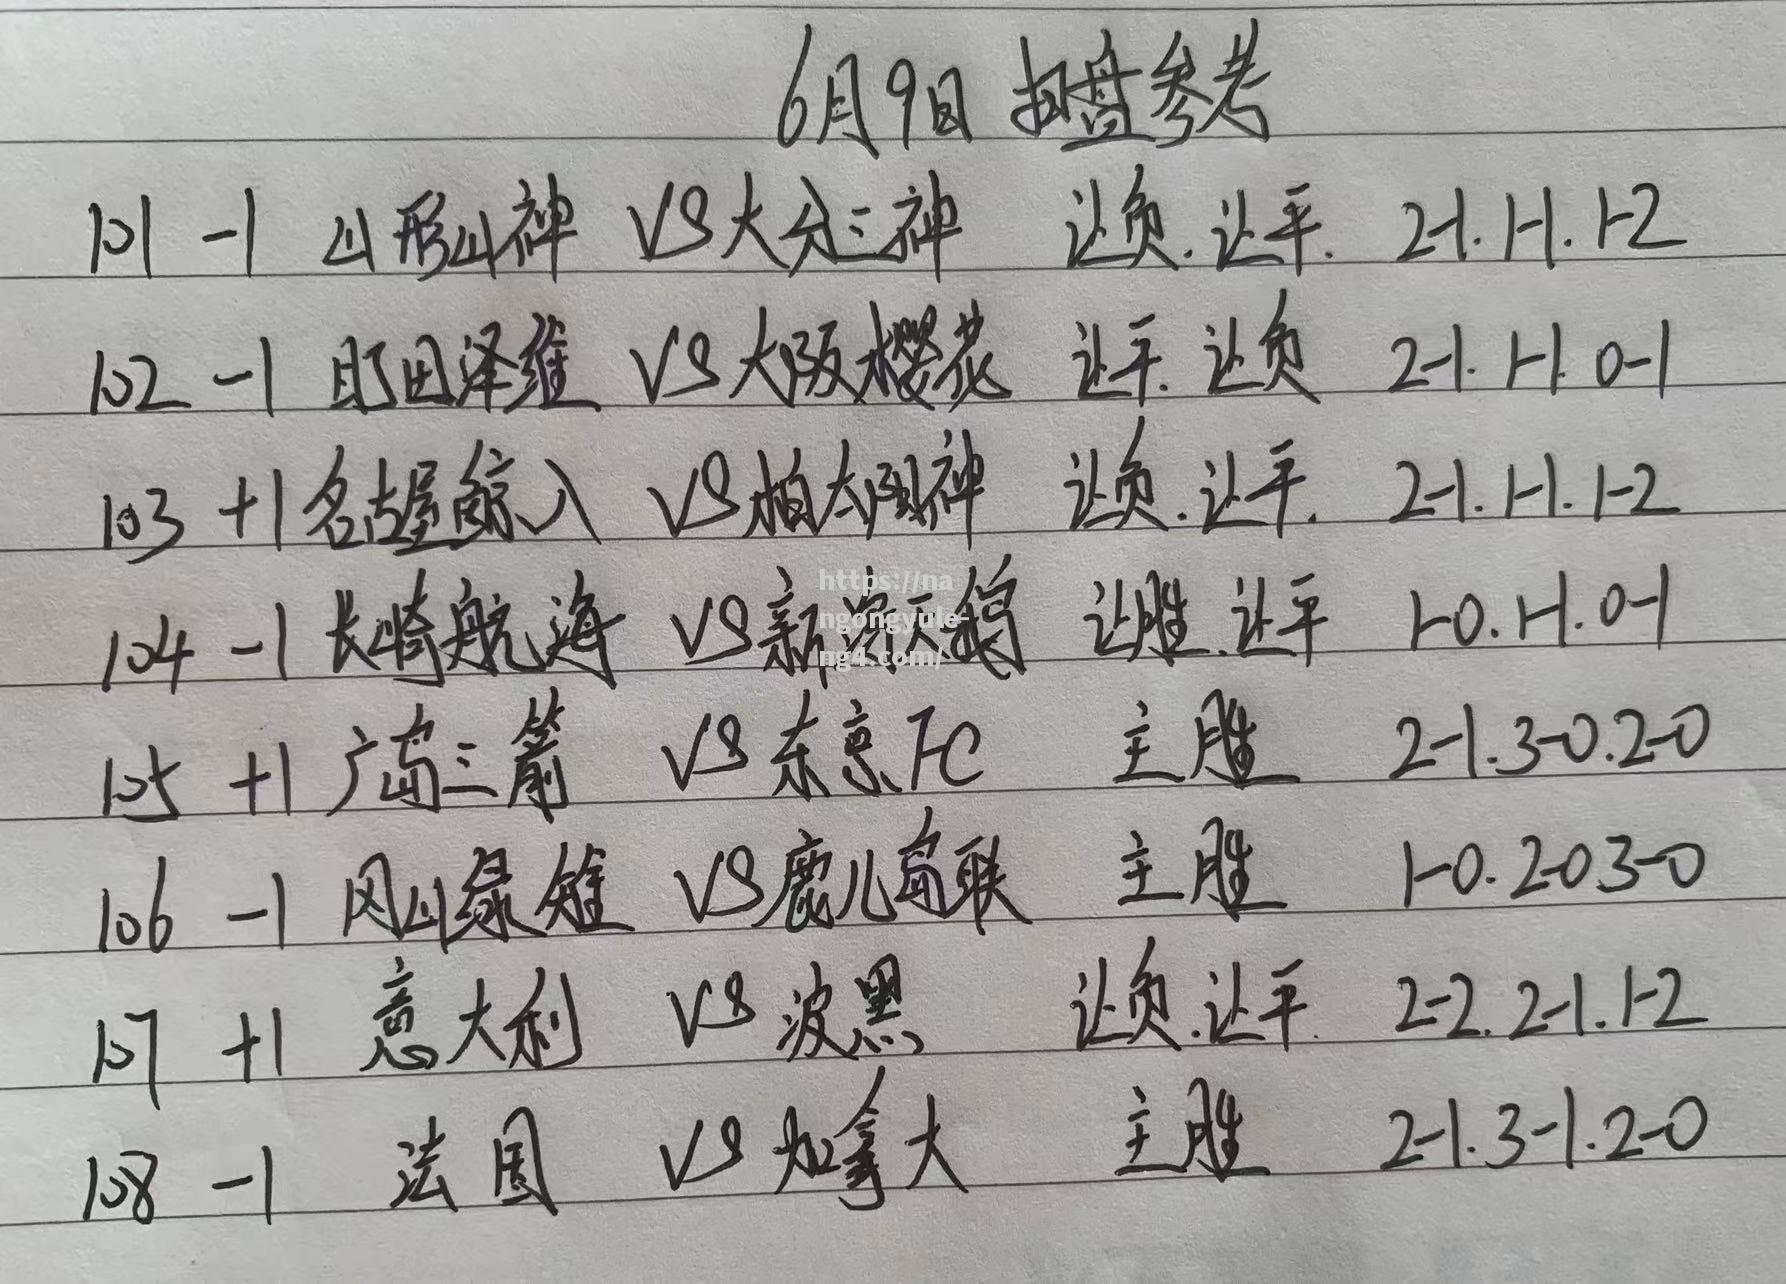 6月9日 扫盘参考
101 -1 山形山神 VS 大分三神 让负.让平. 2-1. 1-1. 1-2
102 -1 町田泽维 VS 大阪樱花 让平. 让负 2-1. 1-1. 0-1
103 +1 名古屋鲸八 VS 柏太阳神 让负.让平. 2-1. 1-1. 1-2
104 -1 长崎航海 VS 新泻天鹅 让胜.让平 1-0. 1-1. 0-1
105 +1 广岛三箭 VS 东京FC 主胜 2-1. 3-0. 2-0
106 -1 冈山绿雉 VS 鹿儿岛联 主胜 1-0. 2-0 3-0
107 +1 意大利 VS 波黑 让负.让平. 2-2. 2-1. 1-2
108 -1 法国 VS 加拿大 主胜 2-1. 3-1. 2-0
https://na
ngongyule-
ng4.com/